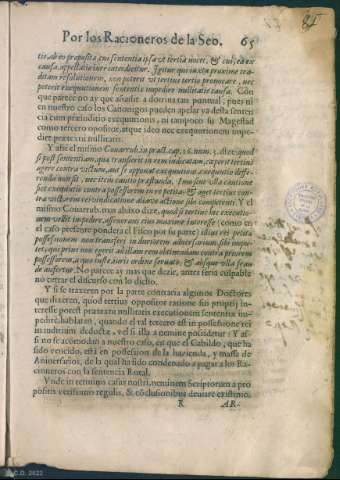 Por los Racioneros de la Seo. 65
tis, ab eo proposita, cui sententia ipsa vt tertia nocet, & cui, ea ex
causa, appellatio iure interdicitur. Igitur qui iuxta proxime tra-
ditam resolutionem, non poterit vt tertius tertio prouocare, nec
poterit exequutionem sententiæ impedire nullitatis causa. Con
que parece no ay que añadir a dotrina tan puntual, pues ni
en nuestro caso los Canonigos pueden apelar ya desta senten
cia cum præiuditio exequutionis, ni tampoco su Magestad
como tercero opositor, atque ideo nec exequutionem impe-
dire prætextu nullitatis.
Y assi el mismo Couarrub. in pract. cap. 16. num. 3. dize: quod
si post sententiam, quæ transierit in rem iudicatam, cœperit tertius
agere contra victum, aut se opponat exequutioni, exequutio diffe-
renda non sit, nec item cautio præstanda. Imo sine vlla cautione
fiet exequutio contra possessorem in re petita, & aget tertius con-
tra victorem rei vendicatione aliave actione sibi competenti. Y el
mismo Couarrub. mas abaxo dize, quod si tertius hac exequutio-
nem vellet impedire, asserens rem eius maxime interesse (como en
el caso presente pondera el Fisco por su parte) di ut rei petitæ
possessionem non transferri in duriorem aduersarium, sibi impe-
net, qui prius non egerit ad illam rem obtinendam contra priorem
possessorem, atque iusto iuris ordine seruato, & absque vlla frau-
de auferetur. No parece ay mas que dezir, antes seria culpable
no cerrar el discurso con lo dicho.
Y si se traxeren por la parte contraria algunos Doctores
que dixeren, quod tertius oppositor ratione sui proprij in-
teresse potest prætextu nullitatis exequutionem sententiæ im-
pedire, hablaran, quando el tal tercero est in possessione rei
in iudicium deductæ, vel si illa à nemine possidetur: Y assi
si no se acomodan a nuestro caso, en que el Cabildo, que ha
sido vencido, està en possession de la hazienda, y massa de
Aniuersarios, de la qual ha sido condenado a pagar a los Ra-
cioneros con la sentencia Rotal.
Vnde in termino casus nostri, neminem Scriptorum à pro
positis verissimis regulis, & cōclusionibus deuiare existimo.
R AR-
C.D. 2022